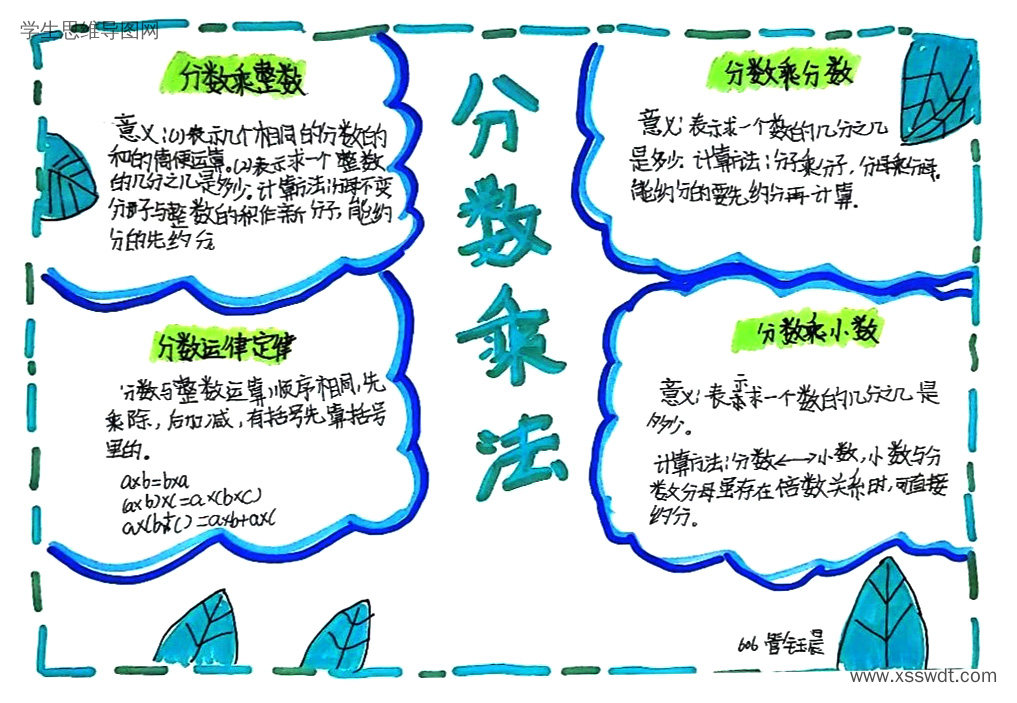 学生思维导图网
分数乘法
分数乘整数
意义:(1)表示几个相同的分数的
和的简便运算。(2)表示求一个整数
的几分之几是多少。计算方法:分母不变
分子与整数的积作新分子,能约
分的先约分
分数乘分数
意义:表示求一个数的几分之几
是多少。计算方法:分子乘分子,分母乘分母。
能约分的要先约分再计算。
分数运律定律
分数与整数运算顺序相同,先
乘除,后加减,有括号先算括号
里的。
a×b=b×a
(a×b)×c=a×(b×c)
a×(b+c)=a×b+a×c
分数乘小数
意义:表示求一个数的几分之几是
多少。
计算方法:分数⟷小数,小数与分
数分母显存在倍数关系时,可直接
约分。
606 管钰晨
www.xsswdt.com